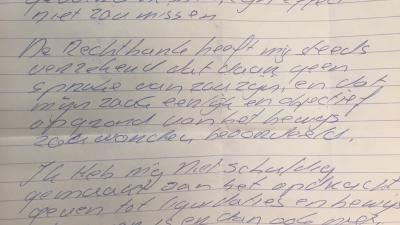 niet zou missen
De Rechtbank heeft mij steeds
verzekerd dat daar geen
sprake van zou zijn, en dat
mijn zaak eerlijk en objectief
op grond van het bewijs
zou worden beoordeeld.
Ik Heb mij Niet schuldig
gemaakt aan het opdracht
geven tot liquidaties en bewijs
is en dan ook niet